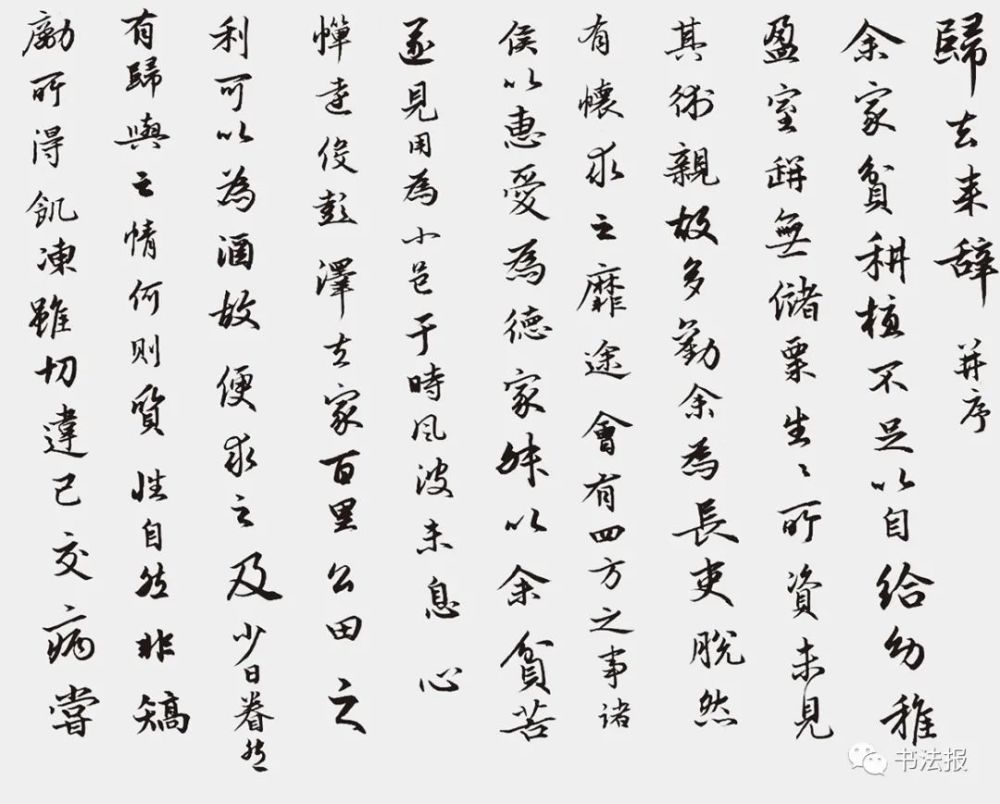 歸去来辞 并序
余家貧耕植不足以自給幼稚
盈室缾無儲粟生〻所資未見
其術親故多勸余為長吏脫然
有懷求之靡途會有四方之事諸
侯以惠愛為德家叔以余貧苦
遂見用為小邑于時風波未息心
憚遠役彭澤去家百里公田之
利可以為酒故便求之及少日眷然
有歸與之情何则質性自然非矯
勵所得飢凍雖切違己交病嘗
书法报